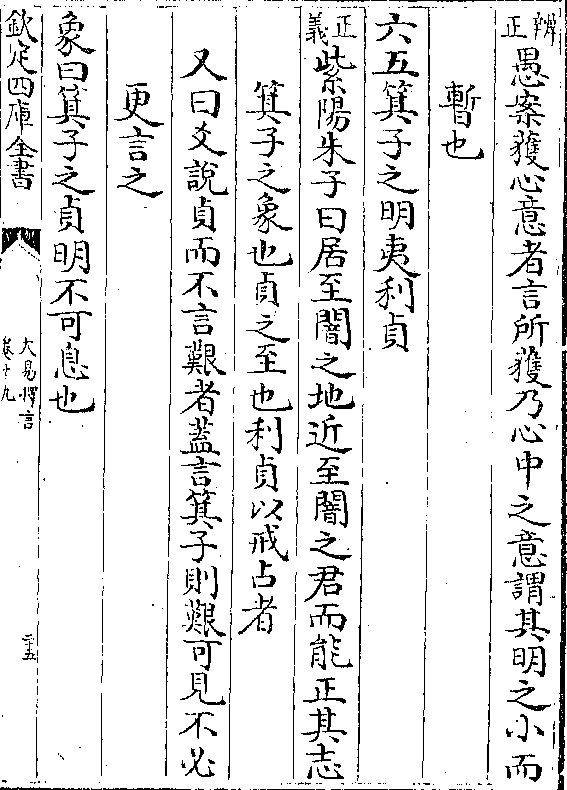 辨正愚案獲心意者言所獲乃心中之意謂其明之小而
暫也
六五箕子之明夷利貞
正義紫陽朱子曰居至闇之地近至闇之君而能正其志
箕子之象也貞之至也利貞以戒占者
又曰爻說貞而不言艱者蓋言箕子則艱可見不必
更言之
象曰箕子之貞明不可息也
欽定四庫全書
大易擇言
卷十九
二五